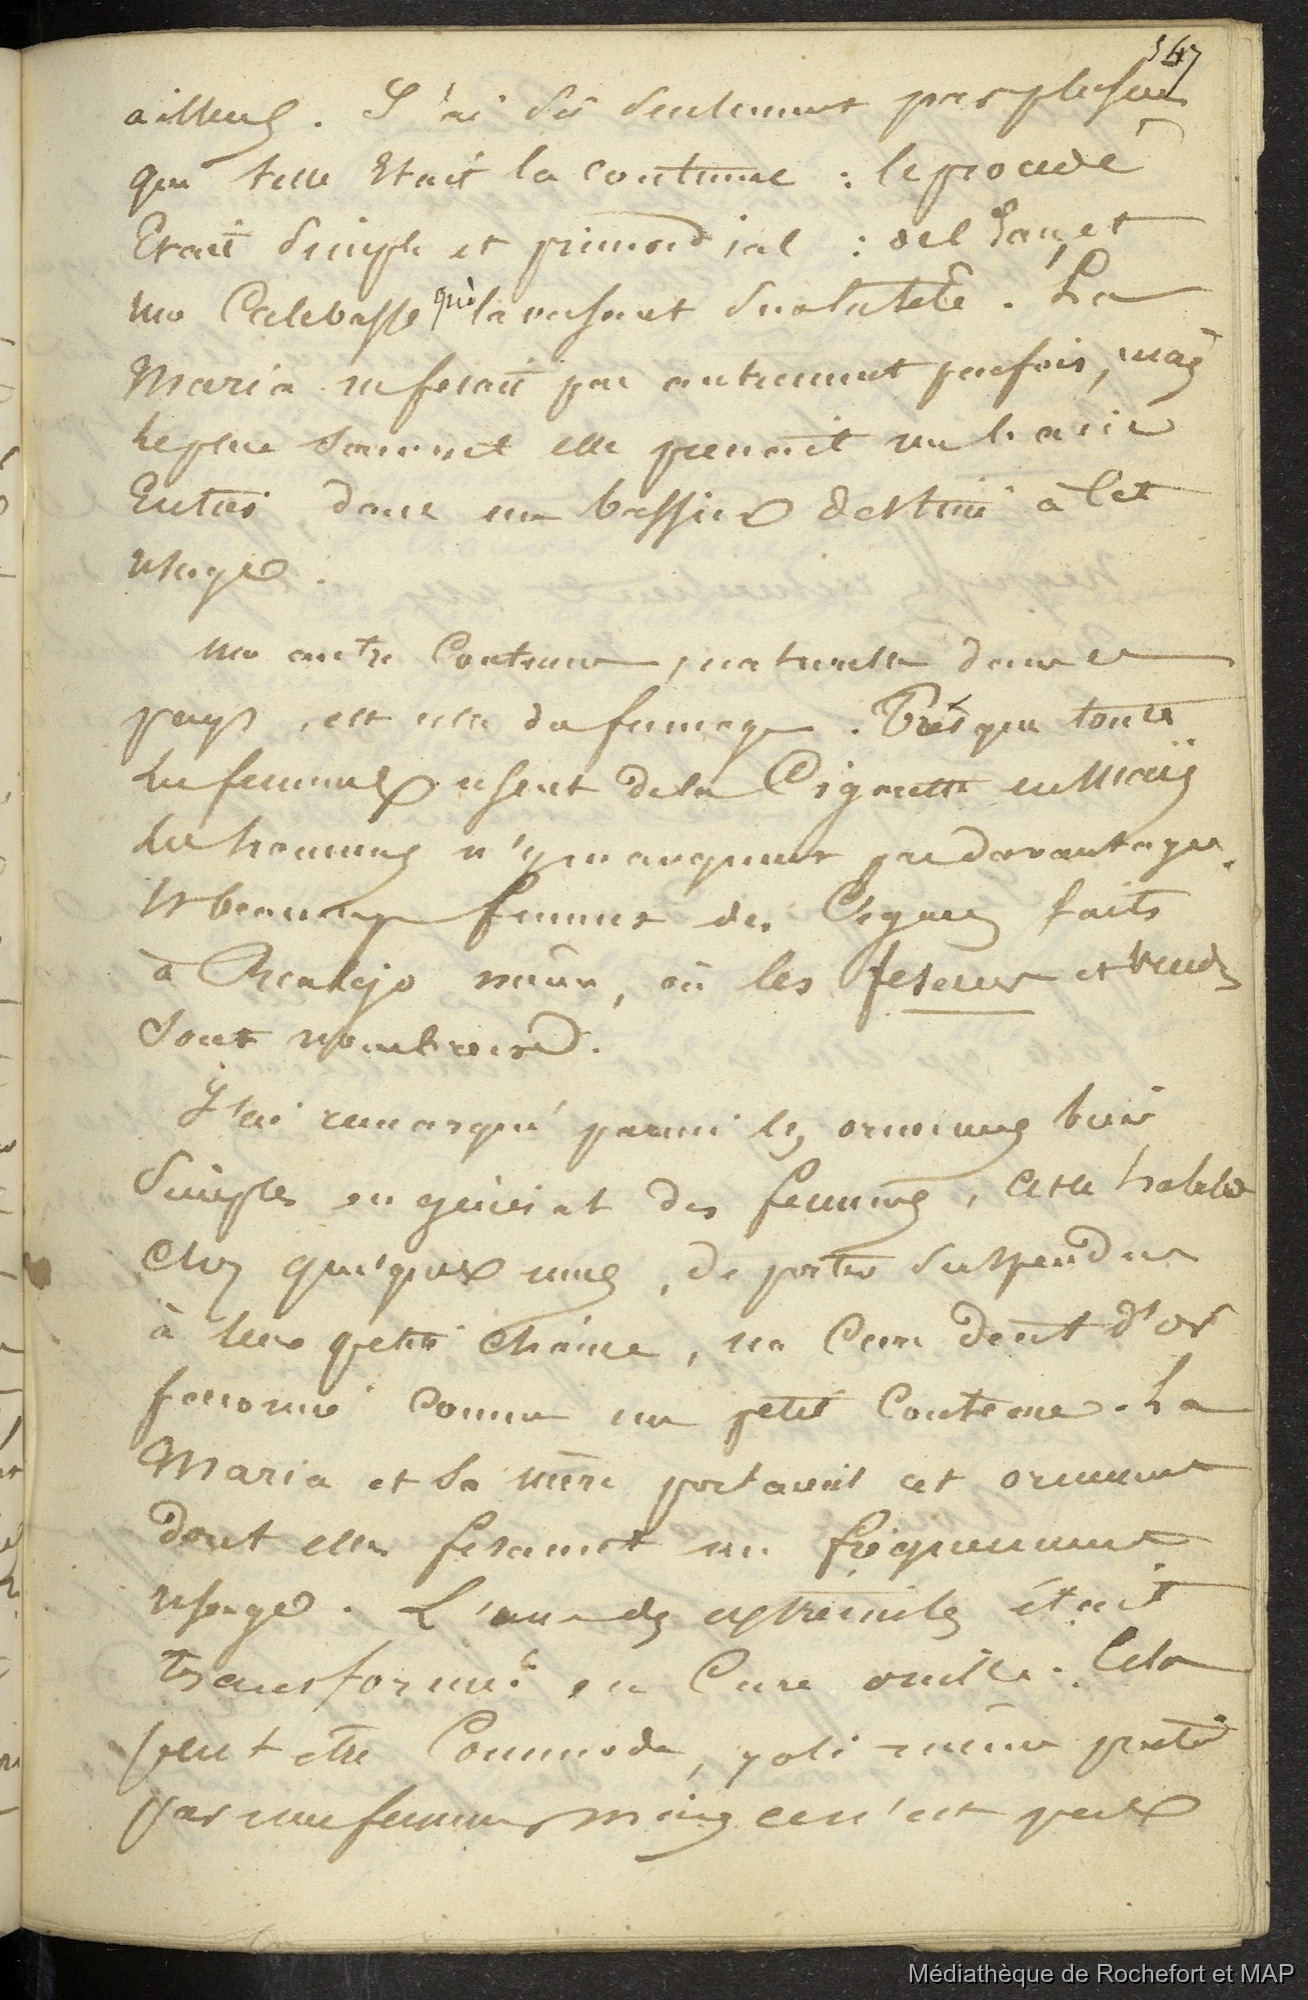 547
ailleurs. J'ai su seulement par plusieurs
que telle était la coutume : le procédé
Etait simple et primordial : de l'eau, et
une Calebasse qui la versant sur la tête. La
Maria ne fesait pas autrement parfois, mais
le plus souvent elle prenait un bain
Entier, dans un bassin destiné à cet
usage.
Une autre Coutume, naturelle dans ce
pays, est celle de fumer. Presque toutes
les femmes usent de la Cigarette en Maïs
les hommes n'y manquent pas davantage.
et beaucoup fument des Cigares faits
à même, où les feseurs et vend.
sont nombreux.
J'ai remarqué parmi les ornemens bien
simples en général des femmes, cette habitude
chez quelques unes, de porter suspendu
à leur petite chaîne, un Cure dent d'or
façonné comme un petit Couteau. La
Maria et sa mère portaient cet ornement
dont elles fesaient un fréquemment
usage. L'une des extrémités était
transformée en Cure oreille. Cela
peut être Commode, joli même porté
par une femme, mais ce n'est pas
Médiathèque de Rochefort et MAP